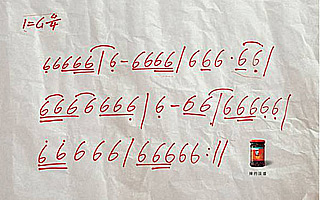 1=G 6/4
66666|6-6666|666·66|
6666666|6-66|66666|
66666|66666:||